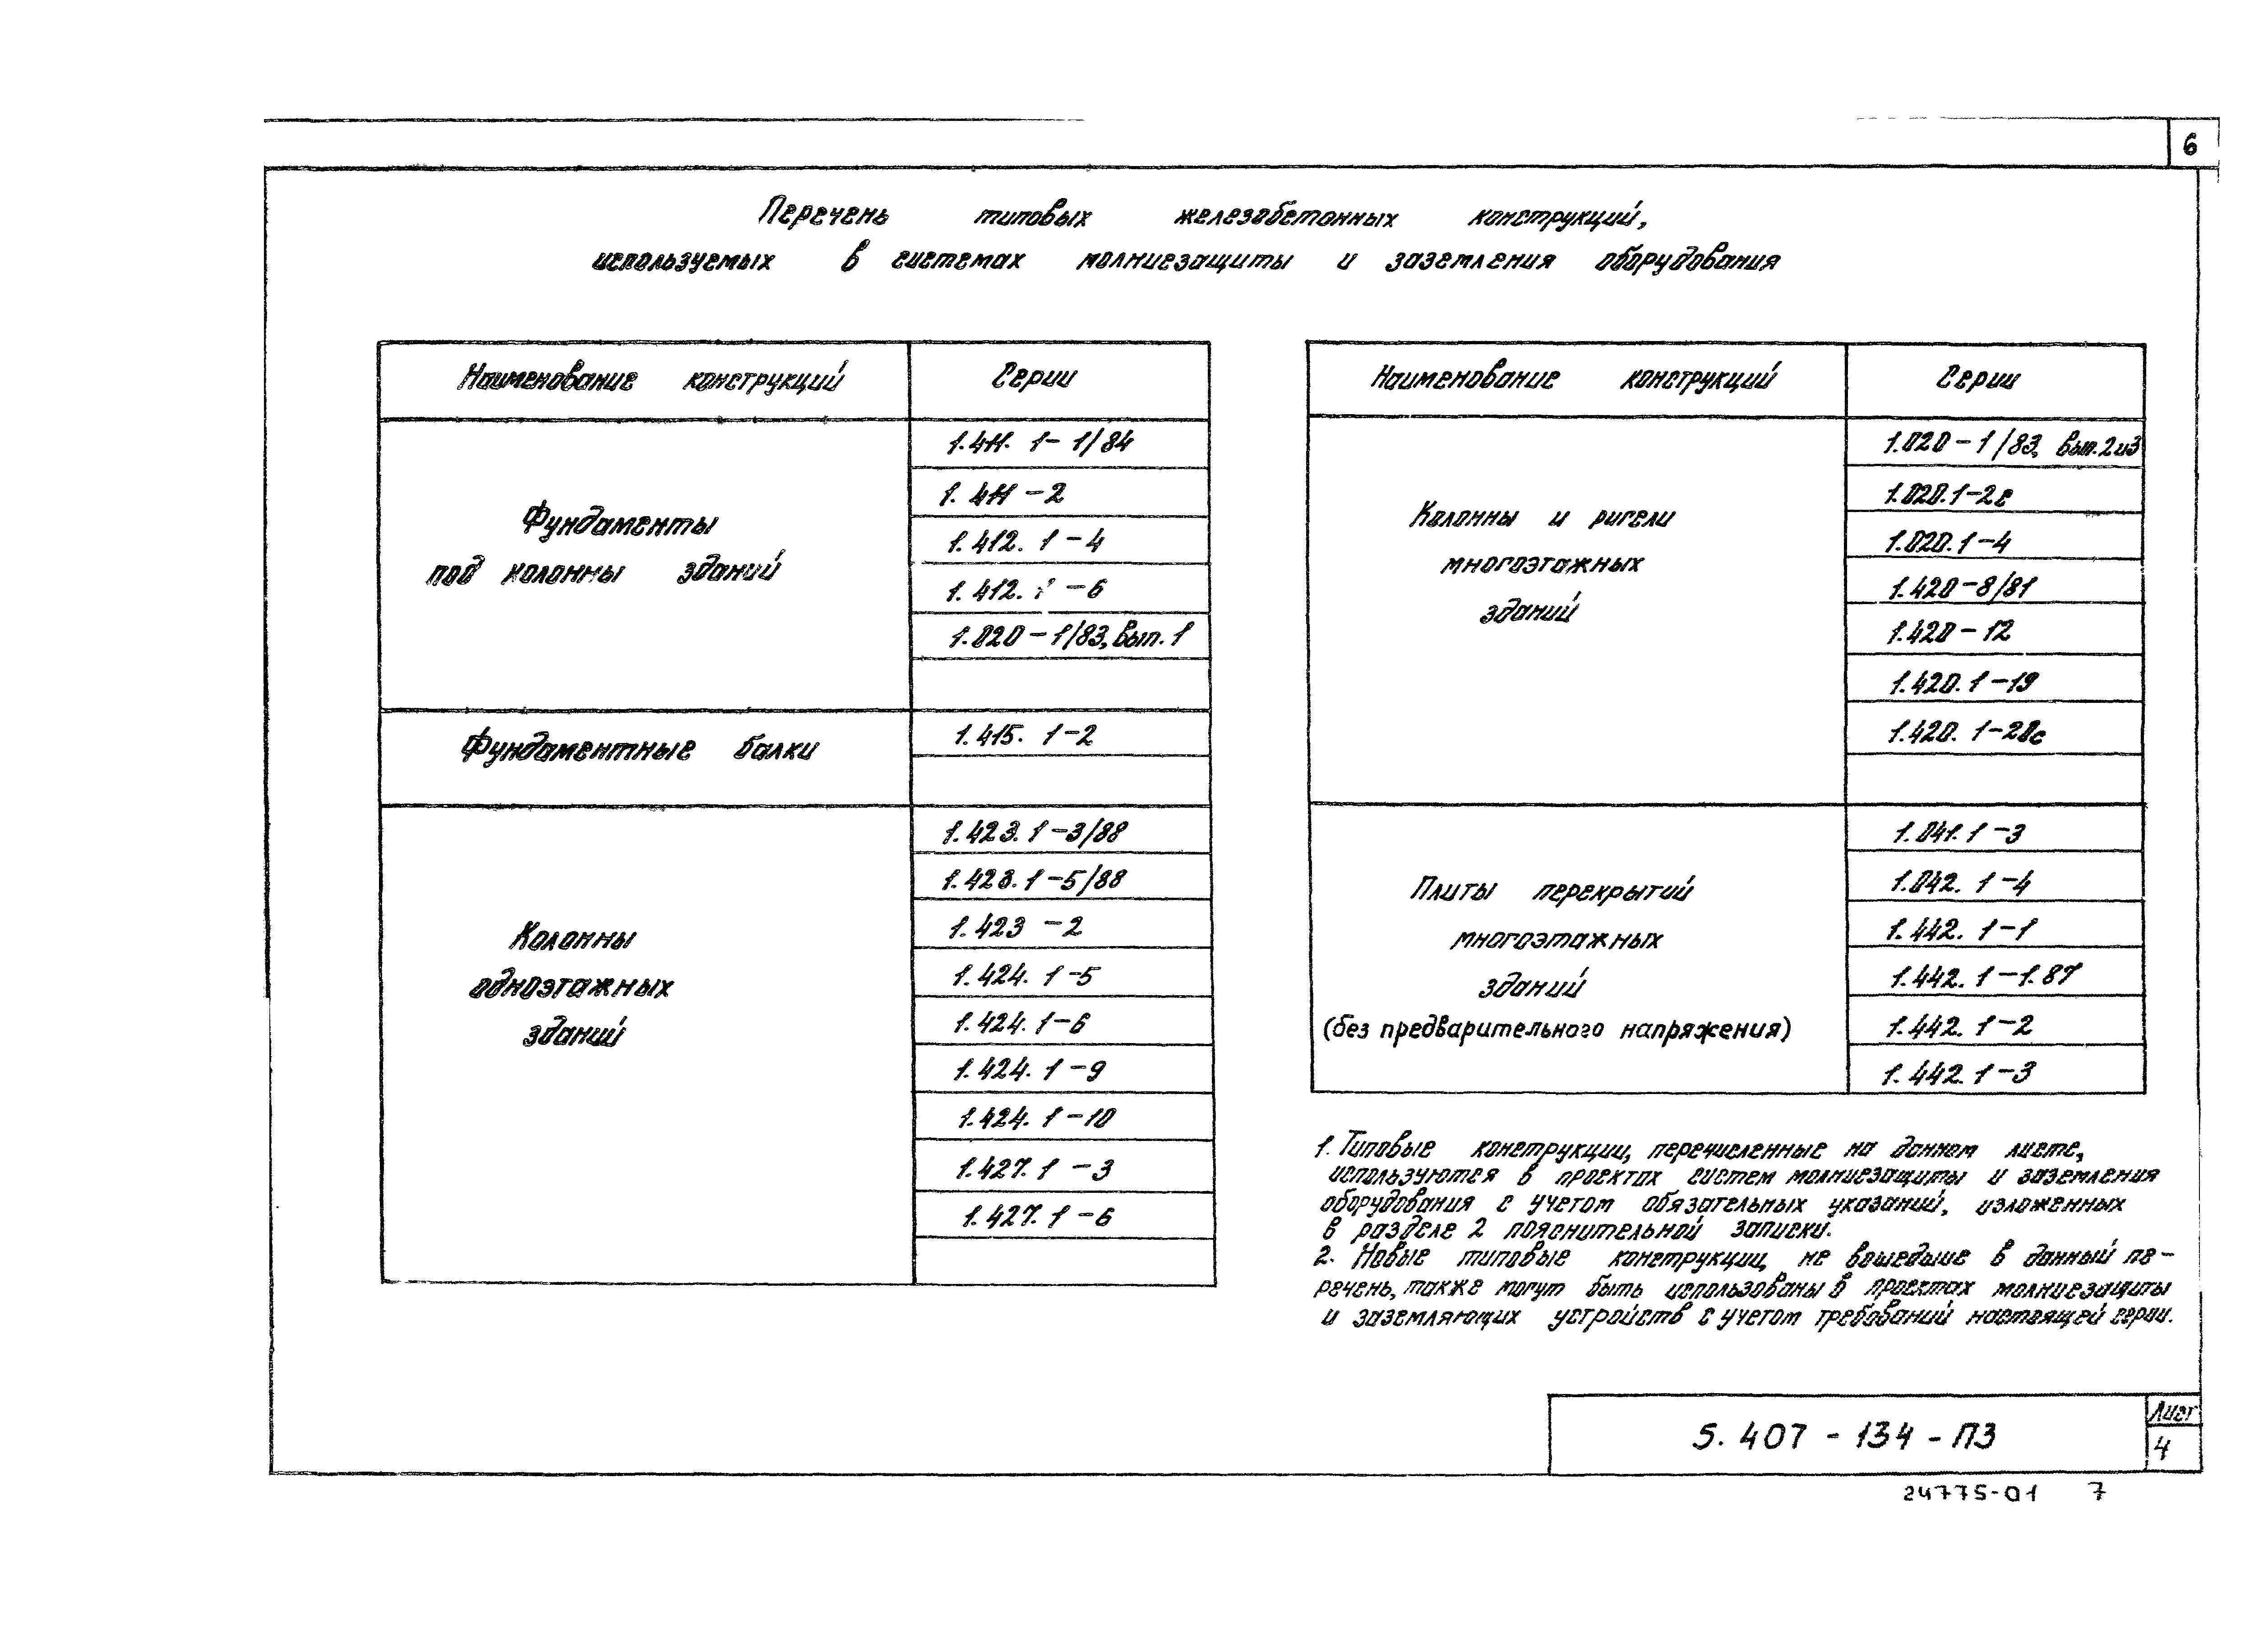 6
Перечень типовых железобетонных конструкций,
используемых в системах молниезащиты и заземления оборудования
Наименование конструкций Серии
Фундаменты
под колонны зданий
1.411. 1-1/84
1. 411-2
1. 412. 1-4
1. 412. -6
1.020-1/83, вып. 1
Фундаментные балки
1.415. 1-2
Колонны
одноэтажных
зданий
1.423.1-3/88
1.423.1-5/88
1.423-2
1.424. 1-5
1.424. 1-6
1.424. 1-9
1.424. 1-10
1.427. 1-3
1.427. 1-6
Наименование конструкций Серии
Колонны и ригели
многоэтажных
зданий
1.020-1/83, вып. 2 и 3
1.020.1-2с
1.020.1-4
1.420-8/81
1.420-12
1.420.1-19
1.420. 1-20с
Плиты перекрытий
многоэтажных
зданий
(без предварительного напряжения)
1.041.1-3
1.042. 1-4
1.442. 1-1
1.442. 1-1.87
1.442. 1-2
1.442. 1-3
1. Типовые конструкции, перечисленные на данном листе,
используются в проектах систем молниезащиты и заземления
оборудования с учетом обязательных указаний, изложенных
в разделе 2 пояснительной записки.
2. Новые типовые конструкции, не вошедшие в данный пе-
речень, также могут быть использованы в проектах молниезащиты
и заземляющих устройств с учетом требований настоящей серии.
5.407-134-ПЗ
Лист
4
24775-01 7